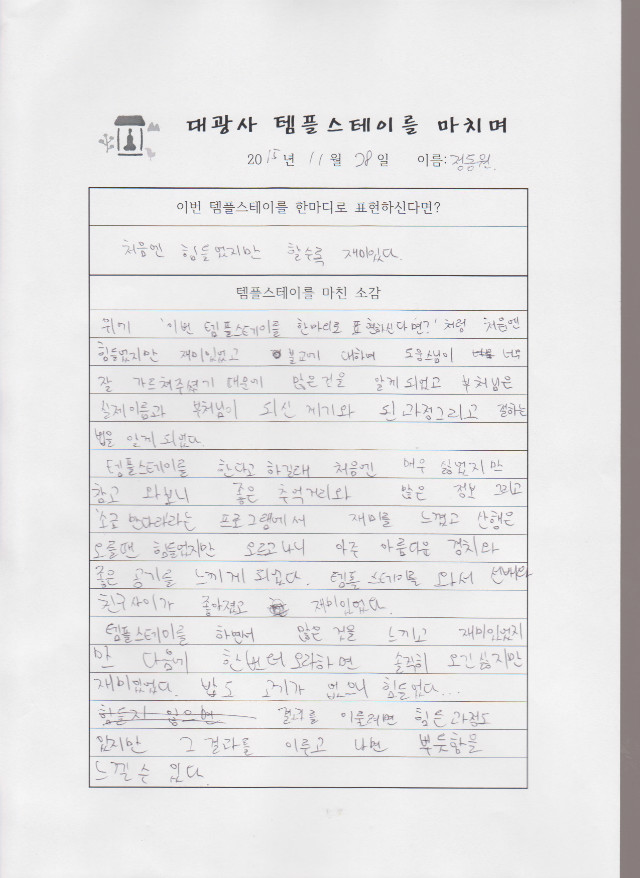 대광사 템플스테이를 마치며
2015년 11월 28일 이름: 정동원
이번 템플스테이를 한마디로 표현하신다면?
처음엔 힘들었지만 할수록 재미있다.
템플스테이를 마친 소감
위기 '이번 템플스테이를 한마디로 표현하신다면?' 처럼 처음엔
힘들었지만 재미있었고 불교에 대하여 도움스님이 너무
잘 가르쳐주셨기 때문에 많은 것을 알게 되었고 부처님은
실제이름과 부처님이 되신 계기와 된 과정그리고 절하는
법을 알게 되었다.
템플스테이를 한다고 하길래 처음엔 매우 싫었지만
참고 와보니 좋은 추억거리와 많은 정보 그리고
'소금 만다라'라는 프로그램에서 재미를 느꼈고 산행은
오를땐 힘들었지만 오르고나니 아주 아름다운 경치와
좋은 공기를 느끼게 되었다. 템플스테이를 와서 선배와
친구사이가 좋아졌고 재미있었다.
템플스테이를 하면서 많은 것을 느끼고 재미있었지
만 다음에 한번더 오라하면 솔직히 오긴 싫지만
재미있었다. 밥도 고기가 없으니 힘들었다...
힘들지 않으면 결과를 이룰려면 힘든 과정도
있지만 그 결과를 이루고 나면 뿌듯함을
느낄 수 있다.